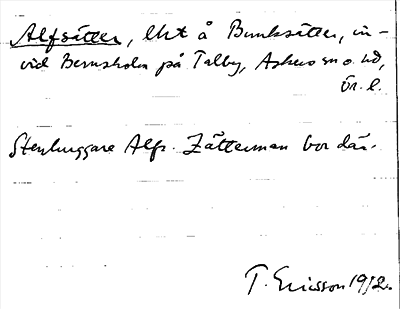 Alfsätter, lht å Bunksätter, in-
vid Bernsholm på Talby, Askers sn o. hd,
Ör. l.
Stenhuggare Alfr. Zätterman bor där.
T. Ericsson 1912.